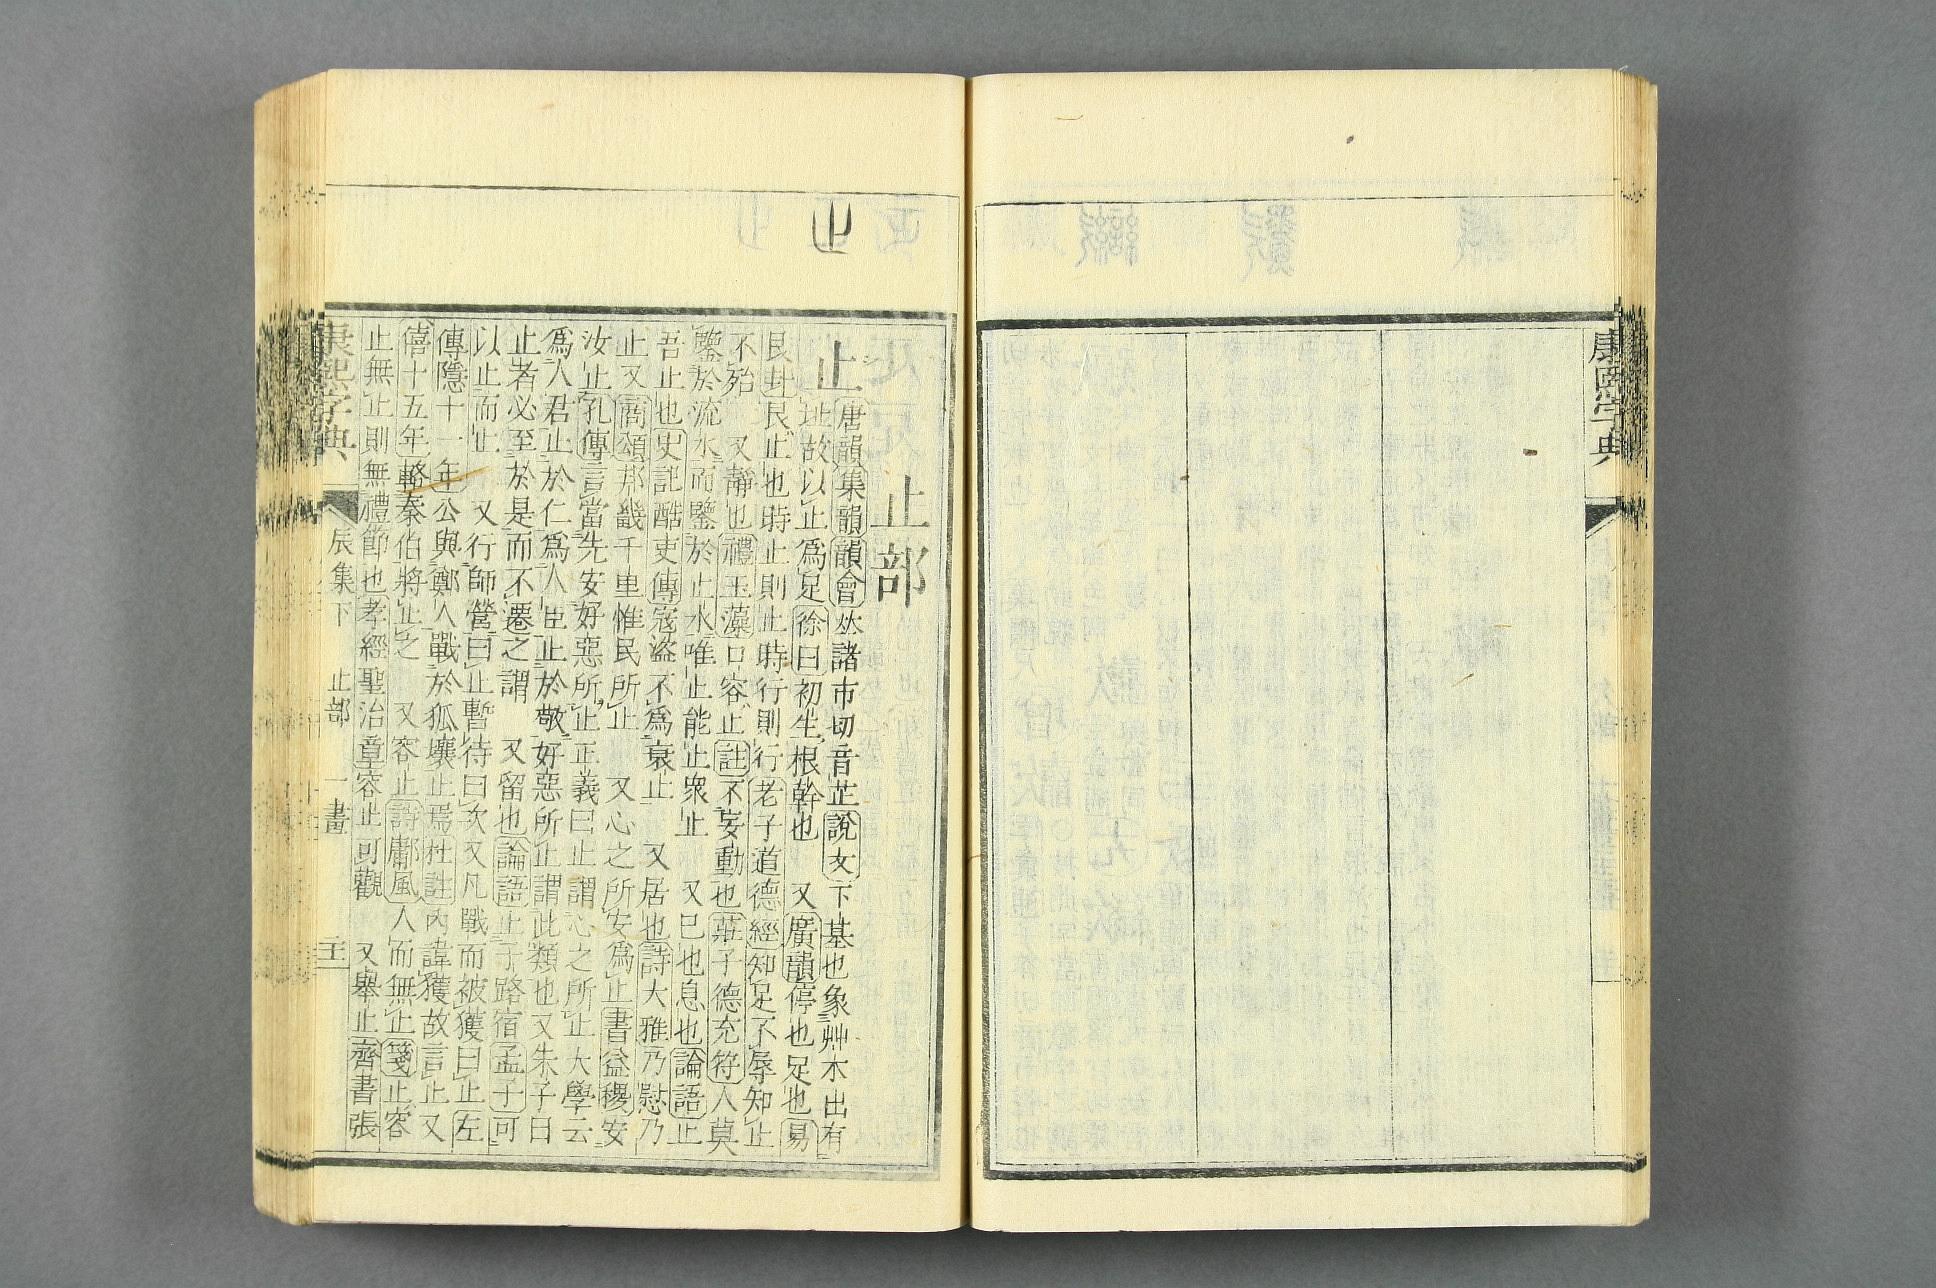 康熙字典
止
止部
止
唐韻集韻韻會𠀤諸市切音芷說文下基也象艸木出有
址故以止爲足徐曰初生根幹也 又廣韻停也足也易
艮卦艮止也時止則止時行則行老子道德經知足不辱知止
不殆 又靜也禮玉藻口容止註不妄動也莊子德充符人莫
鑒於流水而鑒於止水唯止能止衆止 又已也息也論語止
吾止也史記酷吏傳寇盜不爲衰止 又居也詩大雅乃慰乃
止又商頌邦畿千里惟民所止 又心之所安爲止書益稷安
汝止孔傳言當先安好惡所止正義曰止謂心之所止大學云
爲人君止於仁爲人臣止於敬好惡所止謂此類也又朱子曰
止者必至於是而不遷之謂 又留也論語止子路宿孟子可
以止而止 又行師營曰止暫待曰次又凡戰而被獲曰止左
傳隱十一年公與鄭人戰於狐壤止焉杜註內諱獲故言止又
僖十五年輅秦伯將止之 又容止詩鄘風人而無止箋止容
止無止則無禮節也孝經聖治章容止可觀 又舉止齊書張
康熙字典 辰集下 止部 一畫